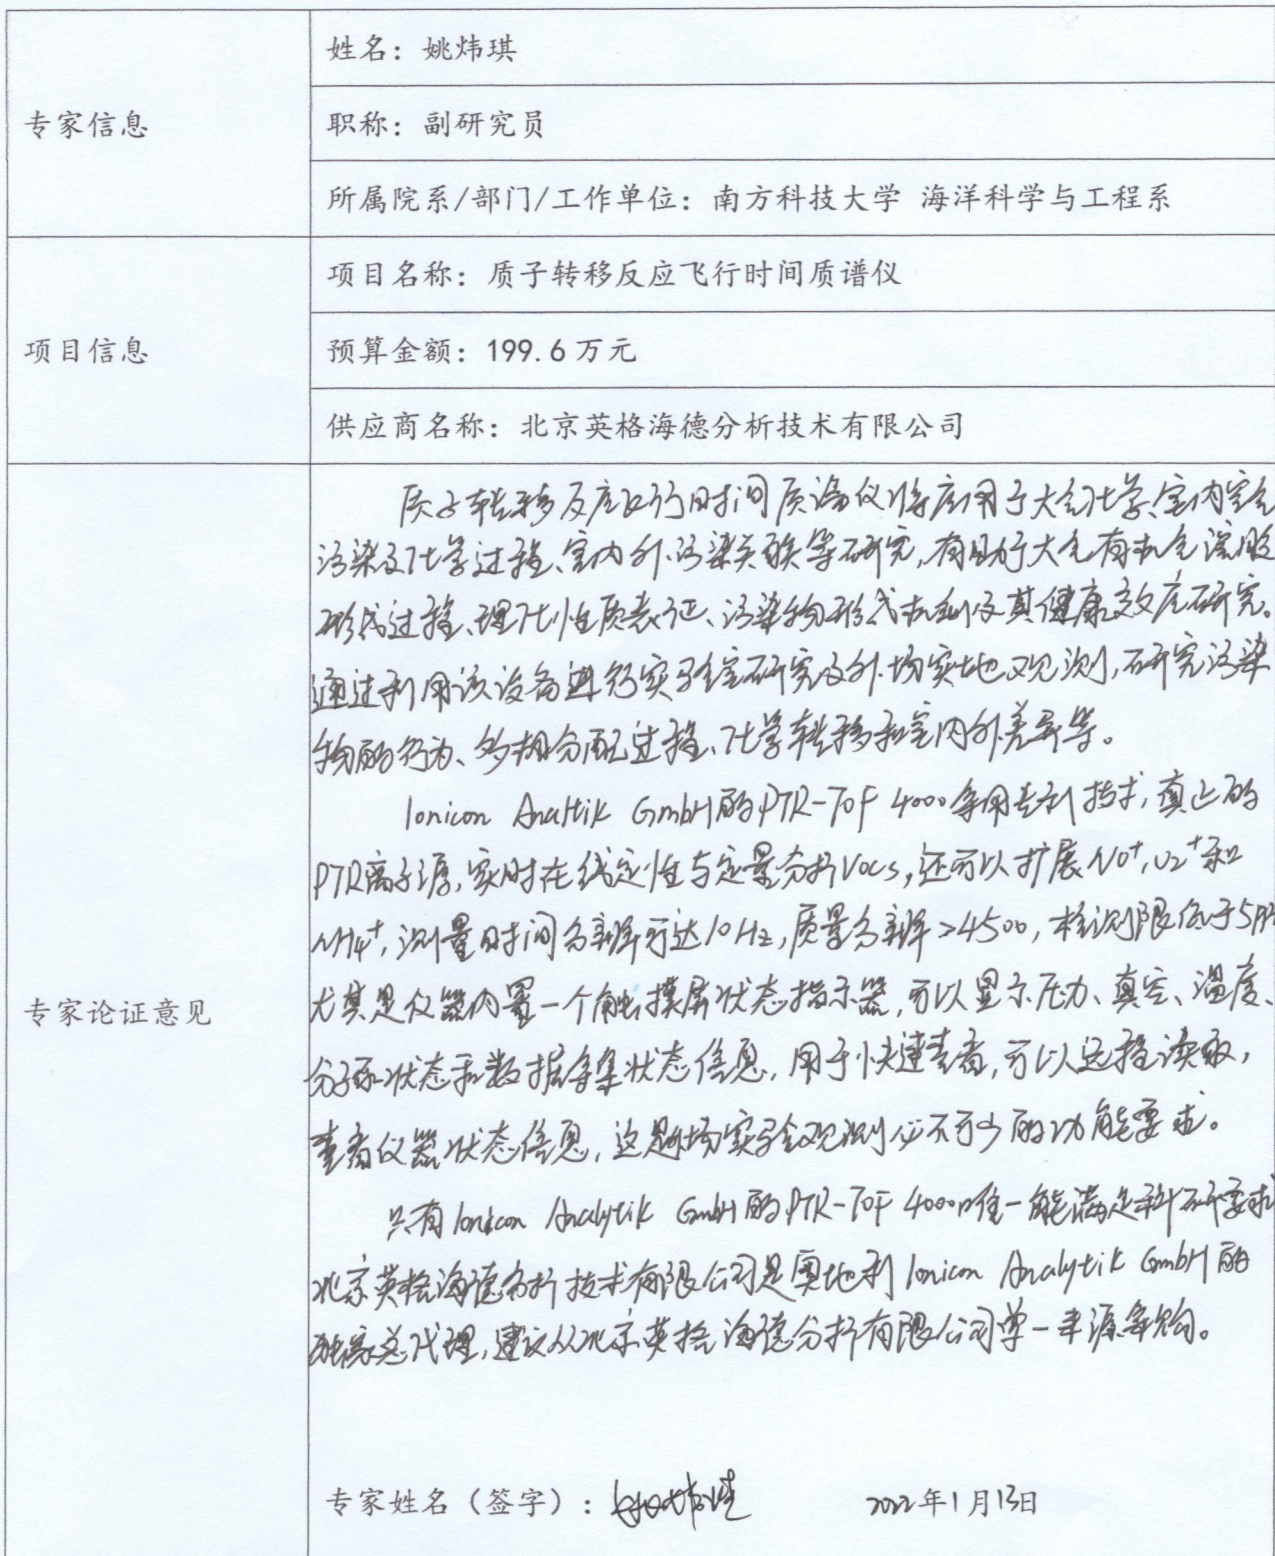 专家信息
姓名：姚炜琪
职称：副研究员
所属院系/部门/工作单位：南方科技大学 海洋科学与工程系
项目信息
项目名称：质子转移反应飞行时间质谱仪
预算金额：199.6万元
供应商名称：北京英格海德分析技术有限公司
专家论证意见
质子转移反应飞行时间质谱仪将应用于大气化学、室内空气
污染及化学过程、室内外污染关联等研究，有助于大气有机气溶胶
形成过程、理化性质表征、污染物形成机制及其健康效应研究。
通过利用该设备进行实验室研究及外场实地观测，研究污染
物的行为、多相分配过程、化学转移和室内外差异等。
Ionicon Analtik GmbH的PTR-TOF 4000采用专利技术，真正的
PTR离子源，实时在线定性与定量分析VOCs，还可以扩展NO+，O2+和
NH4+，测量时间分辨可达10Hz，质量分辨>4500，检测限低于5
尤其是仪器内置一个触摸屏状态指示器，可以显示压力、真空、温度、
分子泵状态和数据采集状态信息，用于快速查看，可以远程读取，
查看仪器状态信息，这是外场实验观测必不可少的功能要求。
只有Ionicon Analytik GmbH的PTR-TOF 4000唯一能满足科研要求
北京英格海德分析技术有限公司是奥地利Ionicon Analytik GmbH的
独家总代理，建议从北京英格海德分析有限公司单一来源采购。
专家姓名（签字）：姚炜琪 2022年1月13日